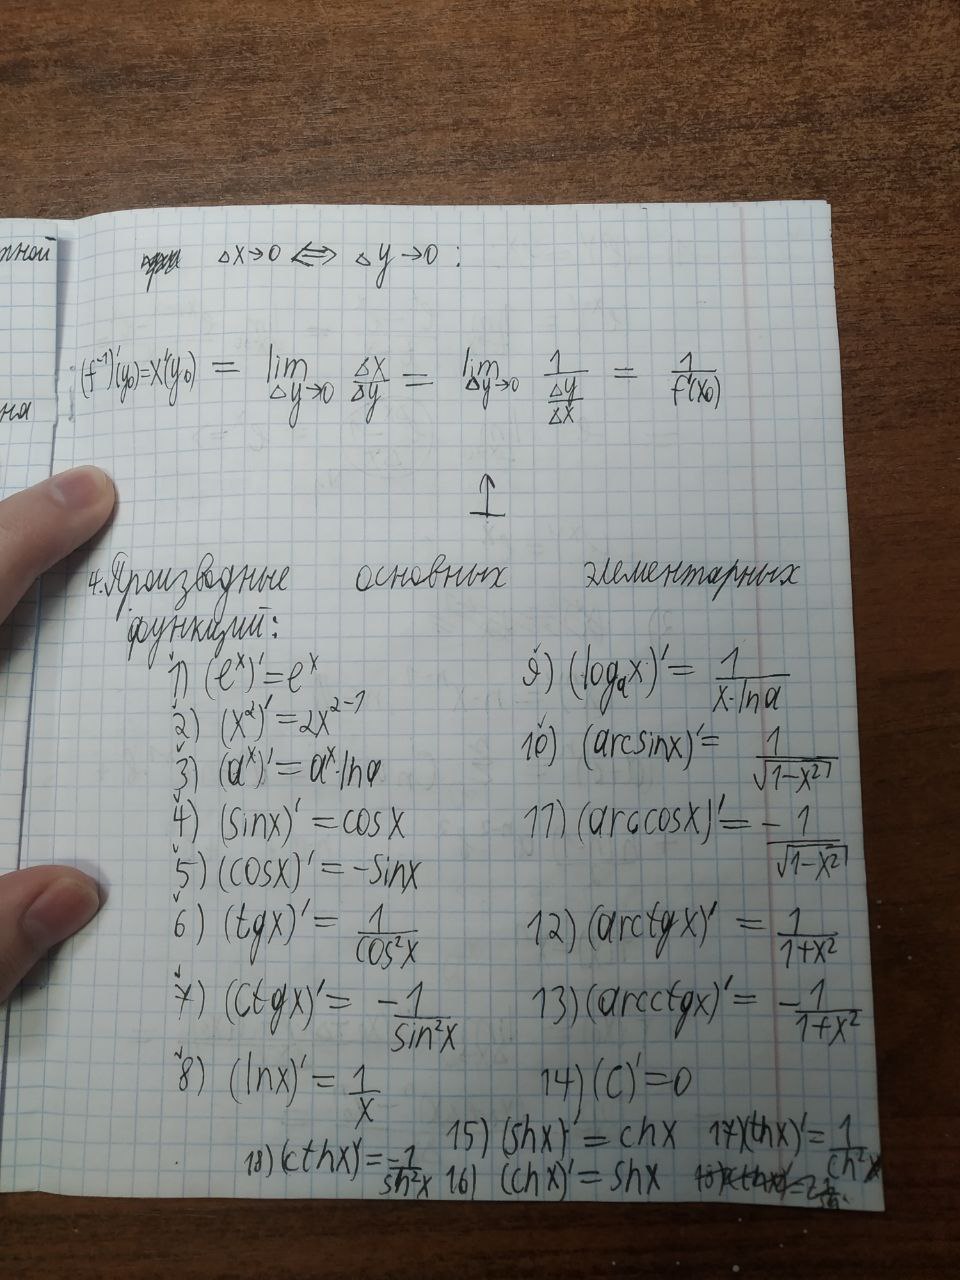 тной
на
Δx→0 ⇔ Δy→0 :
(f⁻¹)'(y₀)=x'(y₀) = lim Δy→0 Δx/Δy = lim Δy→0 1/(Δy/Δx) = 1/f'(x₀)
4. Производные основных элементарных
функций:
1) (eˣ)' = eˣ
2) (x²)' = 2x²⁻¹
3) (aˣ)' = aˣ·lna
4) (sinx)' = cosx
5) (cosx)' = -sinx
6) (tgx)' = 1/cos²x
7) (ctgx)' = -1/sin²x
8) (lnx)' = 1/x
9) (logₐx)' = 1/(x·lna)
10) (arcsinx)' = 1/√(1-x²)
11) (arccosx)' = -1/√(1-x²)
12) (arctgx)' = 1/(1+x²)
13) (arcctgx)' = -1/(1+x²)
14) (C)' = 0
15) (shx)' = chx
16) (chx)' = shx
17) (thx)' = 1/ch²x
18) (cthx)' = -1/sh²x